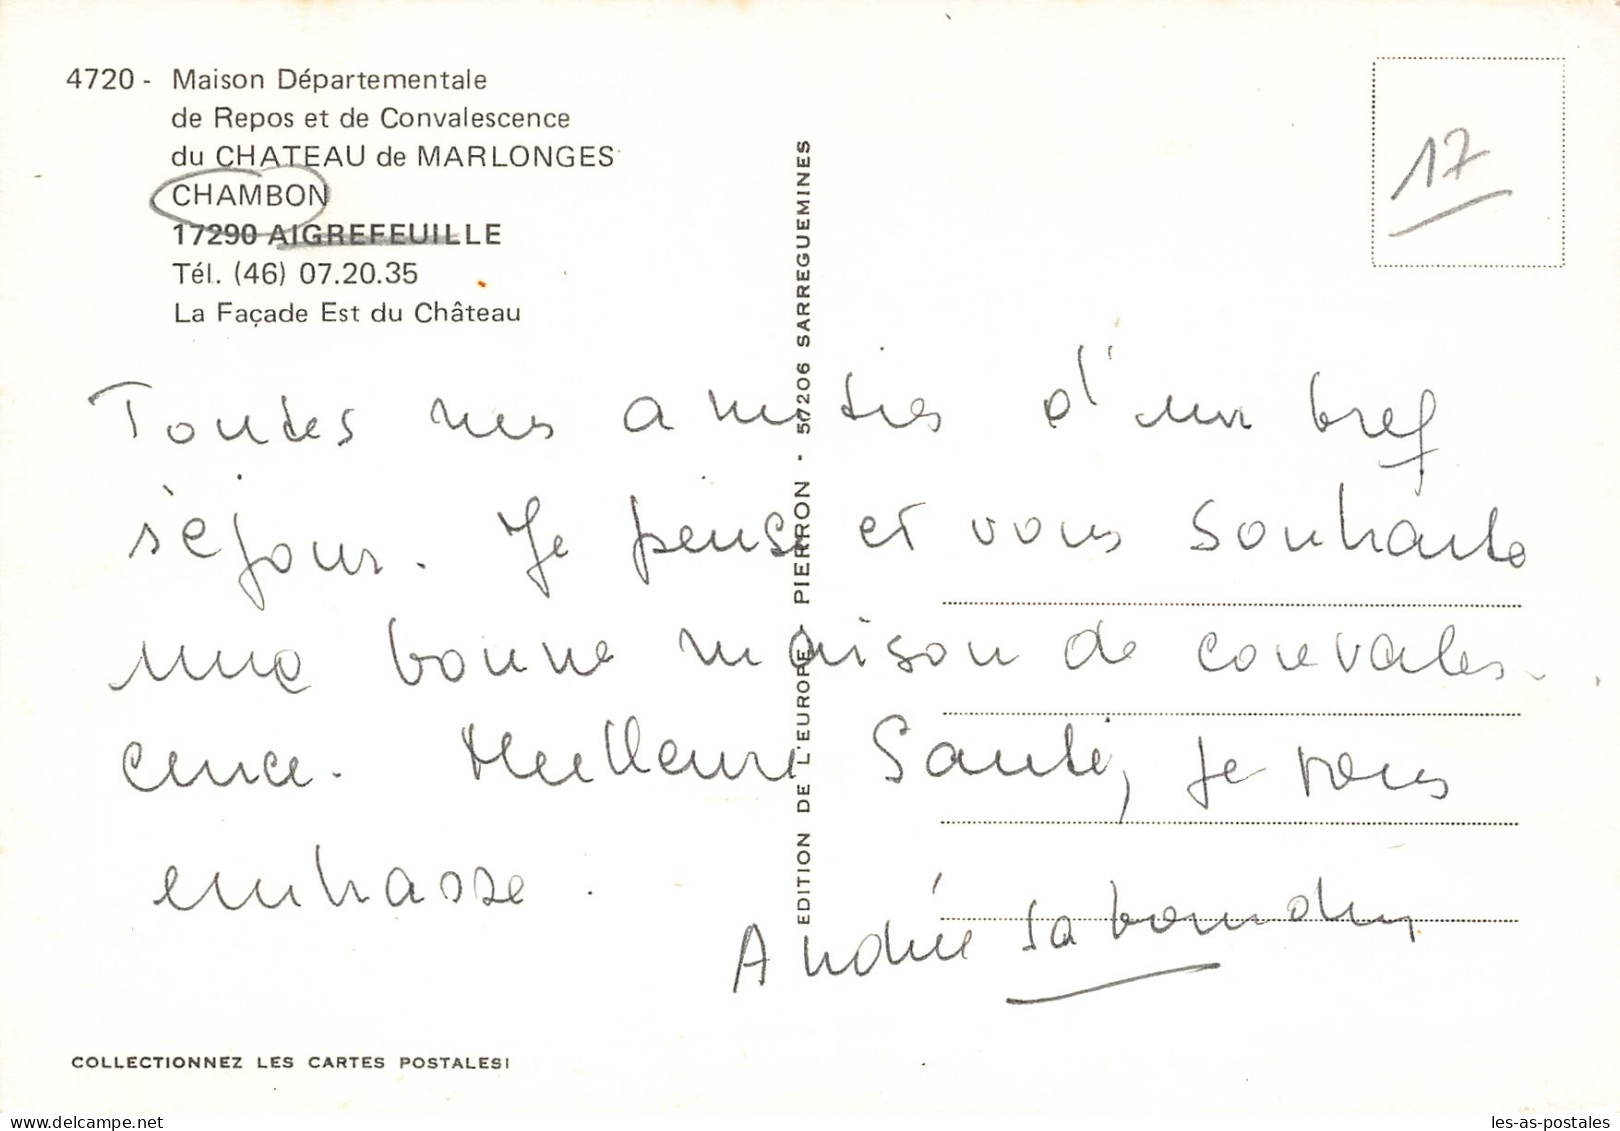 4720 - Maison Départementale
de Repos et de Convalescence
du CHATEAU de MARLONGES
CHAMBON
17290 AIGREFEUILLE
Tél. (46) 07.20.35
La Façade Est du Château
17
EDITION DE L'EUROPE - PIERRON - 57206 SARREGUEMINES
Toutes mes amitiés d'un bref
séjour. Je pense et vous souhaite
une bonne maison de convales-
cence. Meilleure Santé, Je vous
embrasse.
Andrée
COLLECTIONNEZ LES CARTES POSTALES!
les-as-postales